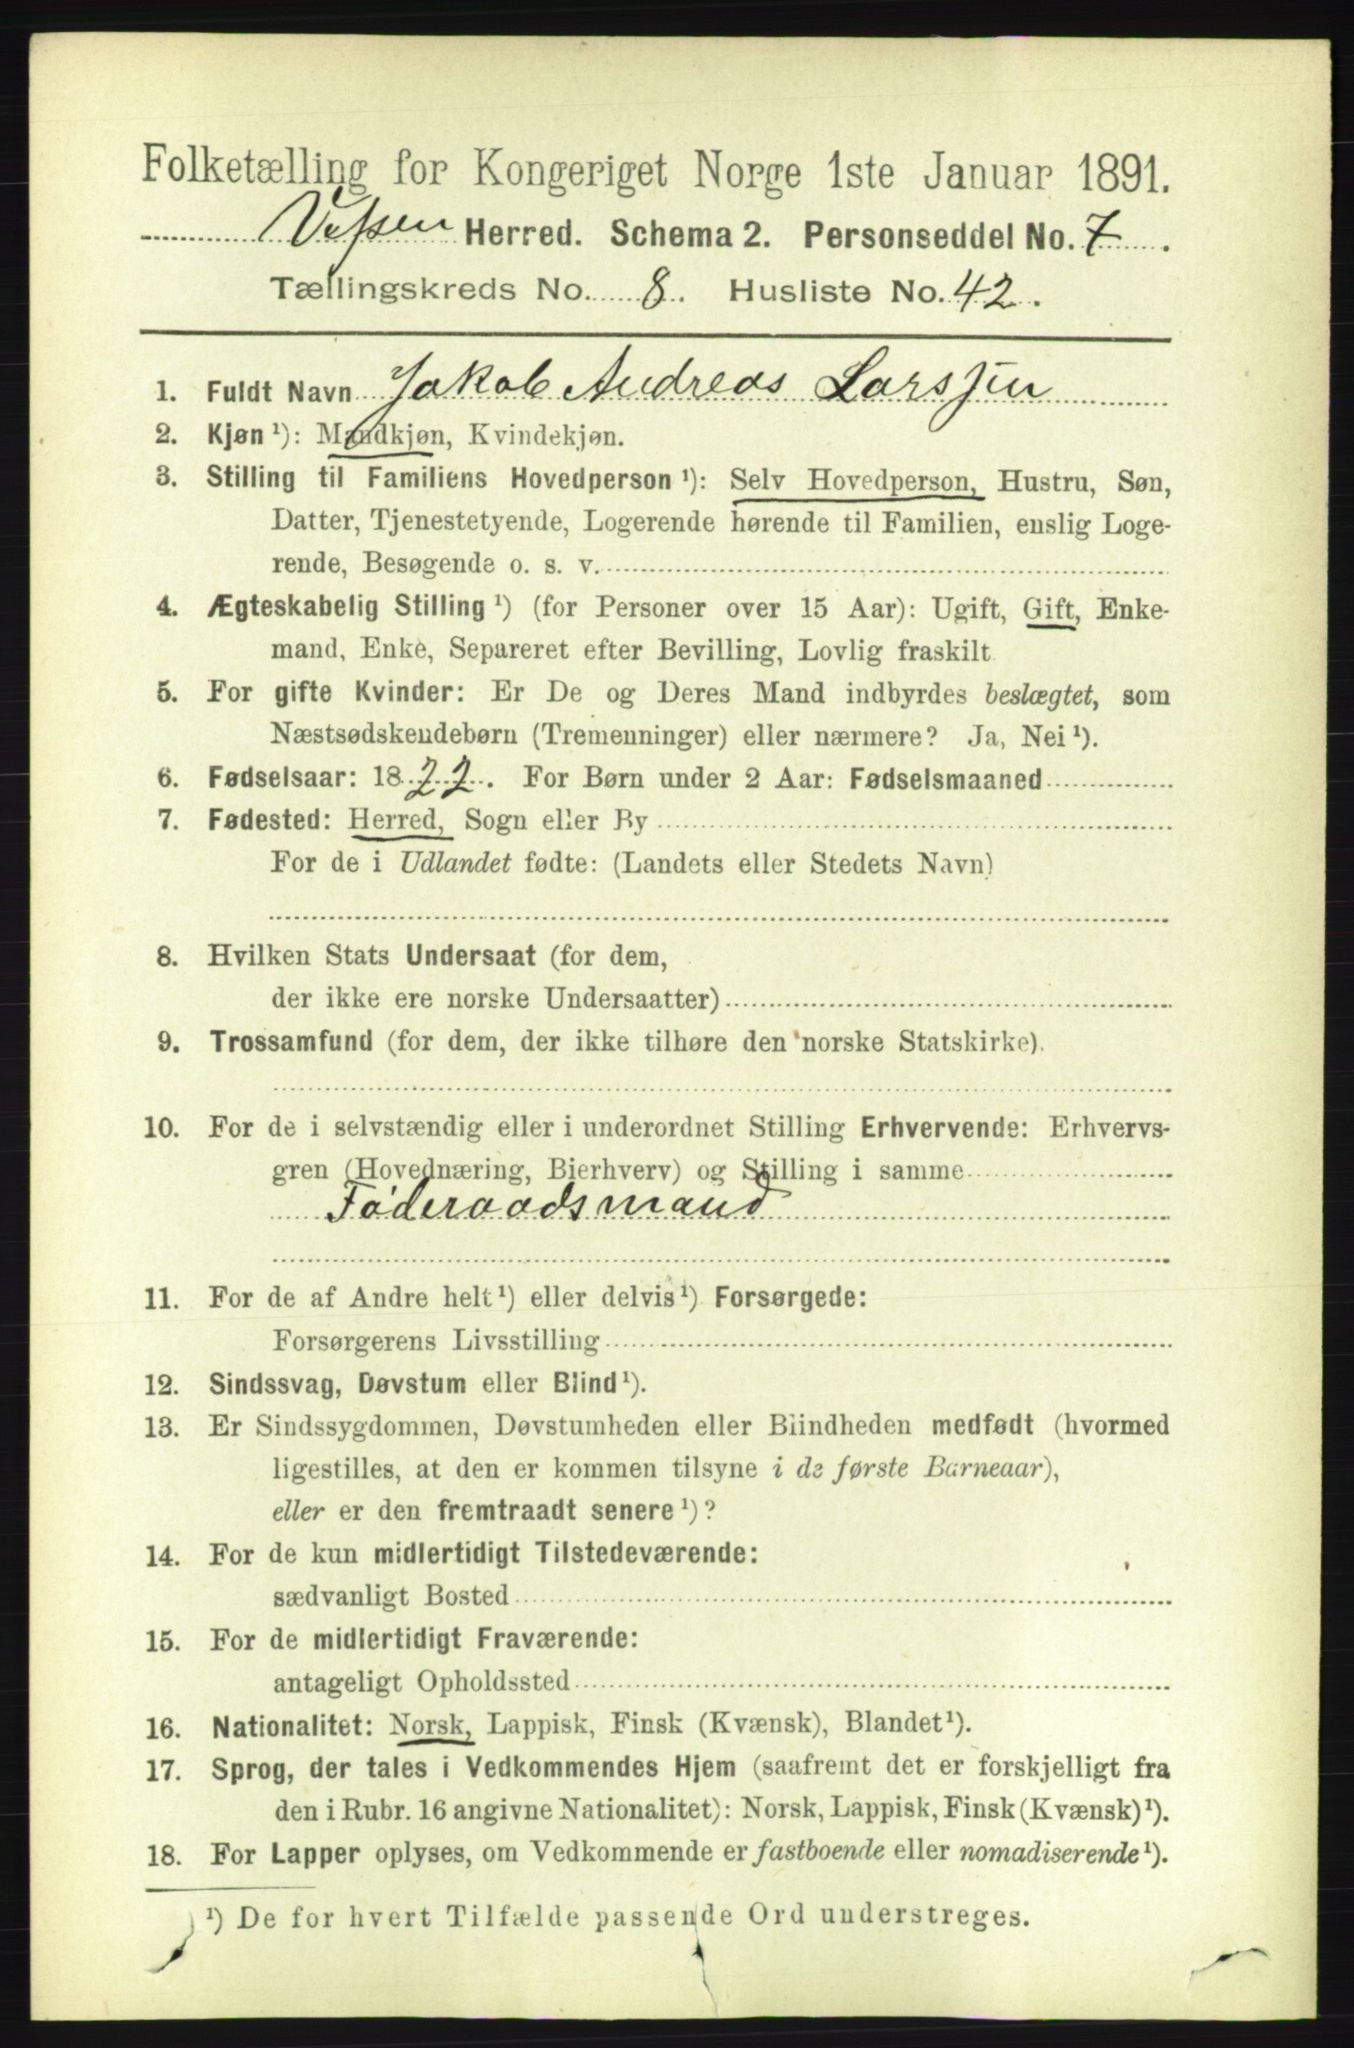 Folketælling for Kongeriget Norge 1ste Januar 1891.
Vefsen Herred. Schema 2. Personseddel No. 7.
Tællingskreds No. 8. Husliste No. 42.
1. Fuldt Navn Jakob Andreas Larssen
2. Kjøn ¹): Mandkjøn, Kvindekjøn.
3. Stilling til Familiens Hovedperson ¹): Selv Hovedperson, Hustru, Søn,
Datter, Tjenestetyende, Logerende hørende til Familien, enslig Loge-
rende, Besøgende o. s. v.
4. Ægteskabelig Stilling ¹) (for Personer over 15 Aar): Ugift, Gift, Enke-
mand, Enke, Separeret efter Bevilling, Lovlig fraskilt
5. For gifte Kvinder: Er De og Deres Mand indbyrdes beslægtet, som
Næstsødskendebørn (Tremenninger) eller nærmere? Ja, Nei ¹).
6. Fødselsaar: 1822. For Børn under 2 Aar: Fødselsmaaned
7. Fødested: Herred, Sogn eller By
For de i Udlandet fødte: (Landets eller Stedets Navn)
8. Hvilken Stats Undersaat (for dem,
der ikke ere norske Undersaatter)
9. Trossamfund (for dem, der ikke tilhøre den norske Statskirke).
10. For de i selvstændig eller i underordnet Stilling Erhvervende: Erhvervs-
gren (Hovednæring, Bierhverv) og Stilling i samme
Føderaadsmand
11. For de af Andre helt ¹) eller delvis ¹) Forsørgede:
Forsørgerens Livsstilling
12. Sindssvag, Døvstum eller Blind ¹).
13. Er Sindssygdommen, Døvstumheden eller Blindheden medfødt (hvormed
ligestilles, at den er kommen tilsyne i de første Barneaar),
eller er den fremtraadt senere ¹)?
14. For de kun midlertidigt Tilstedeværende:
sædvanligt Bosted
15. For de midlertidigt Fraværende:
antageligt Opholdssted
16. Nationalitet: Norsk, Lappisk, Finsk (Kvænsk), Blandet ¹).
17. Sprog, der tales i Vedkommendes Hjem (saafremt det er forskjelligt fra
den i Rubr. 16 angivne Nationalitet): Norsk, Lappisk, Finsk (Kvænsk) ¹).
18. For Lapper oplyses, om Vedkommende er fastboende eller nomadiserende ¹).
¹) De for hvert Tilfælde passende Ord understreges.